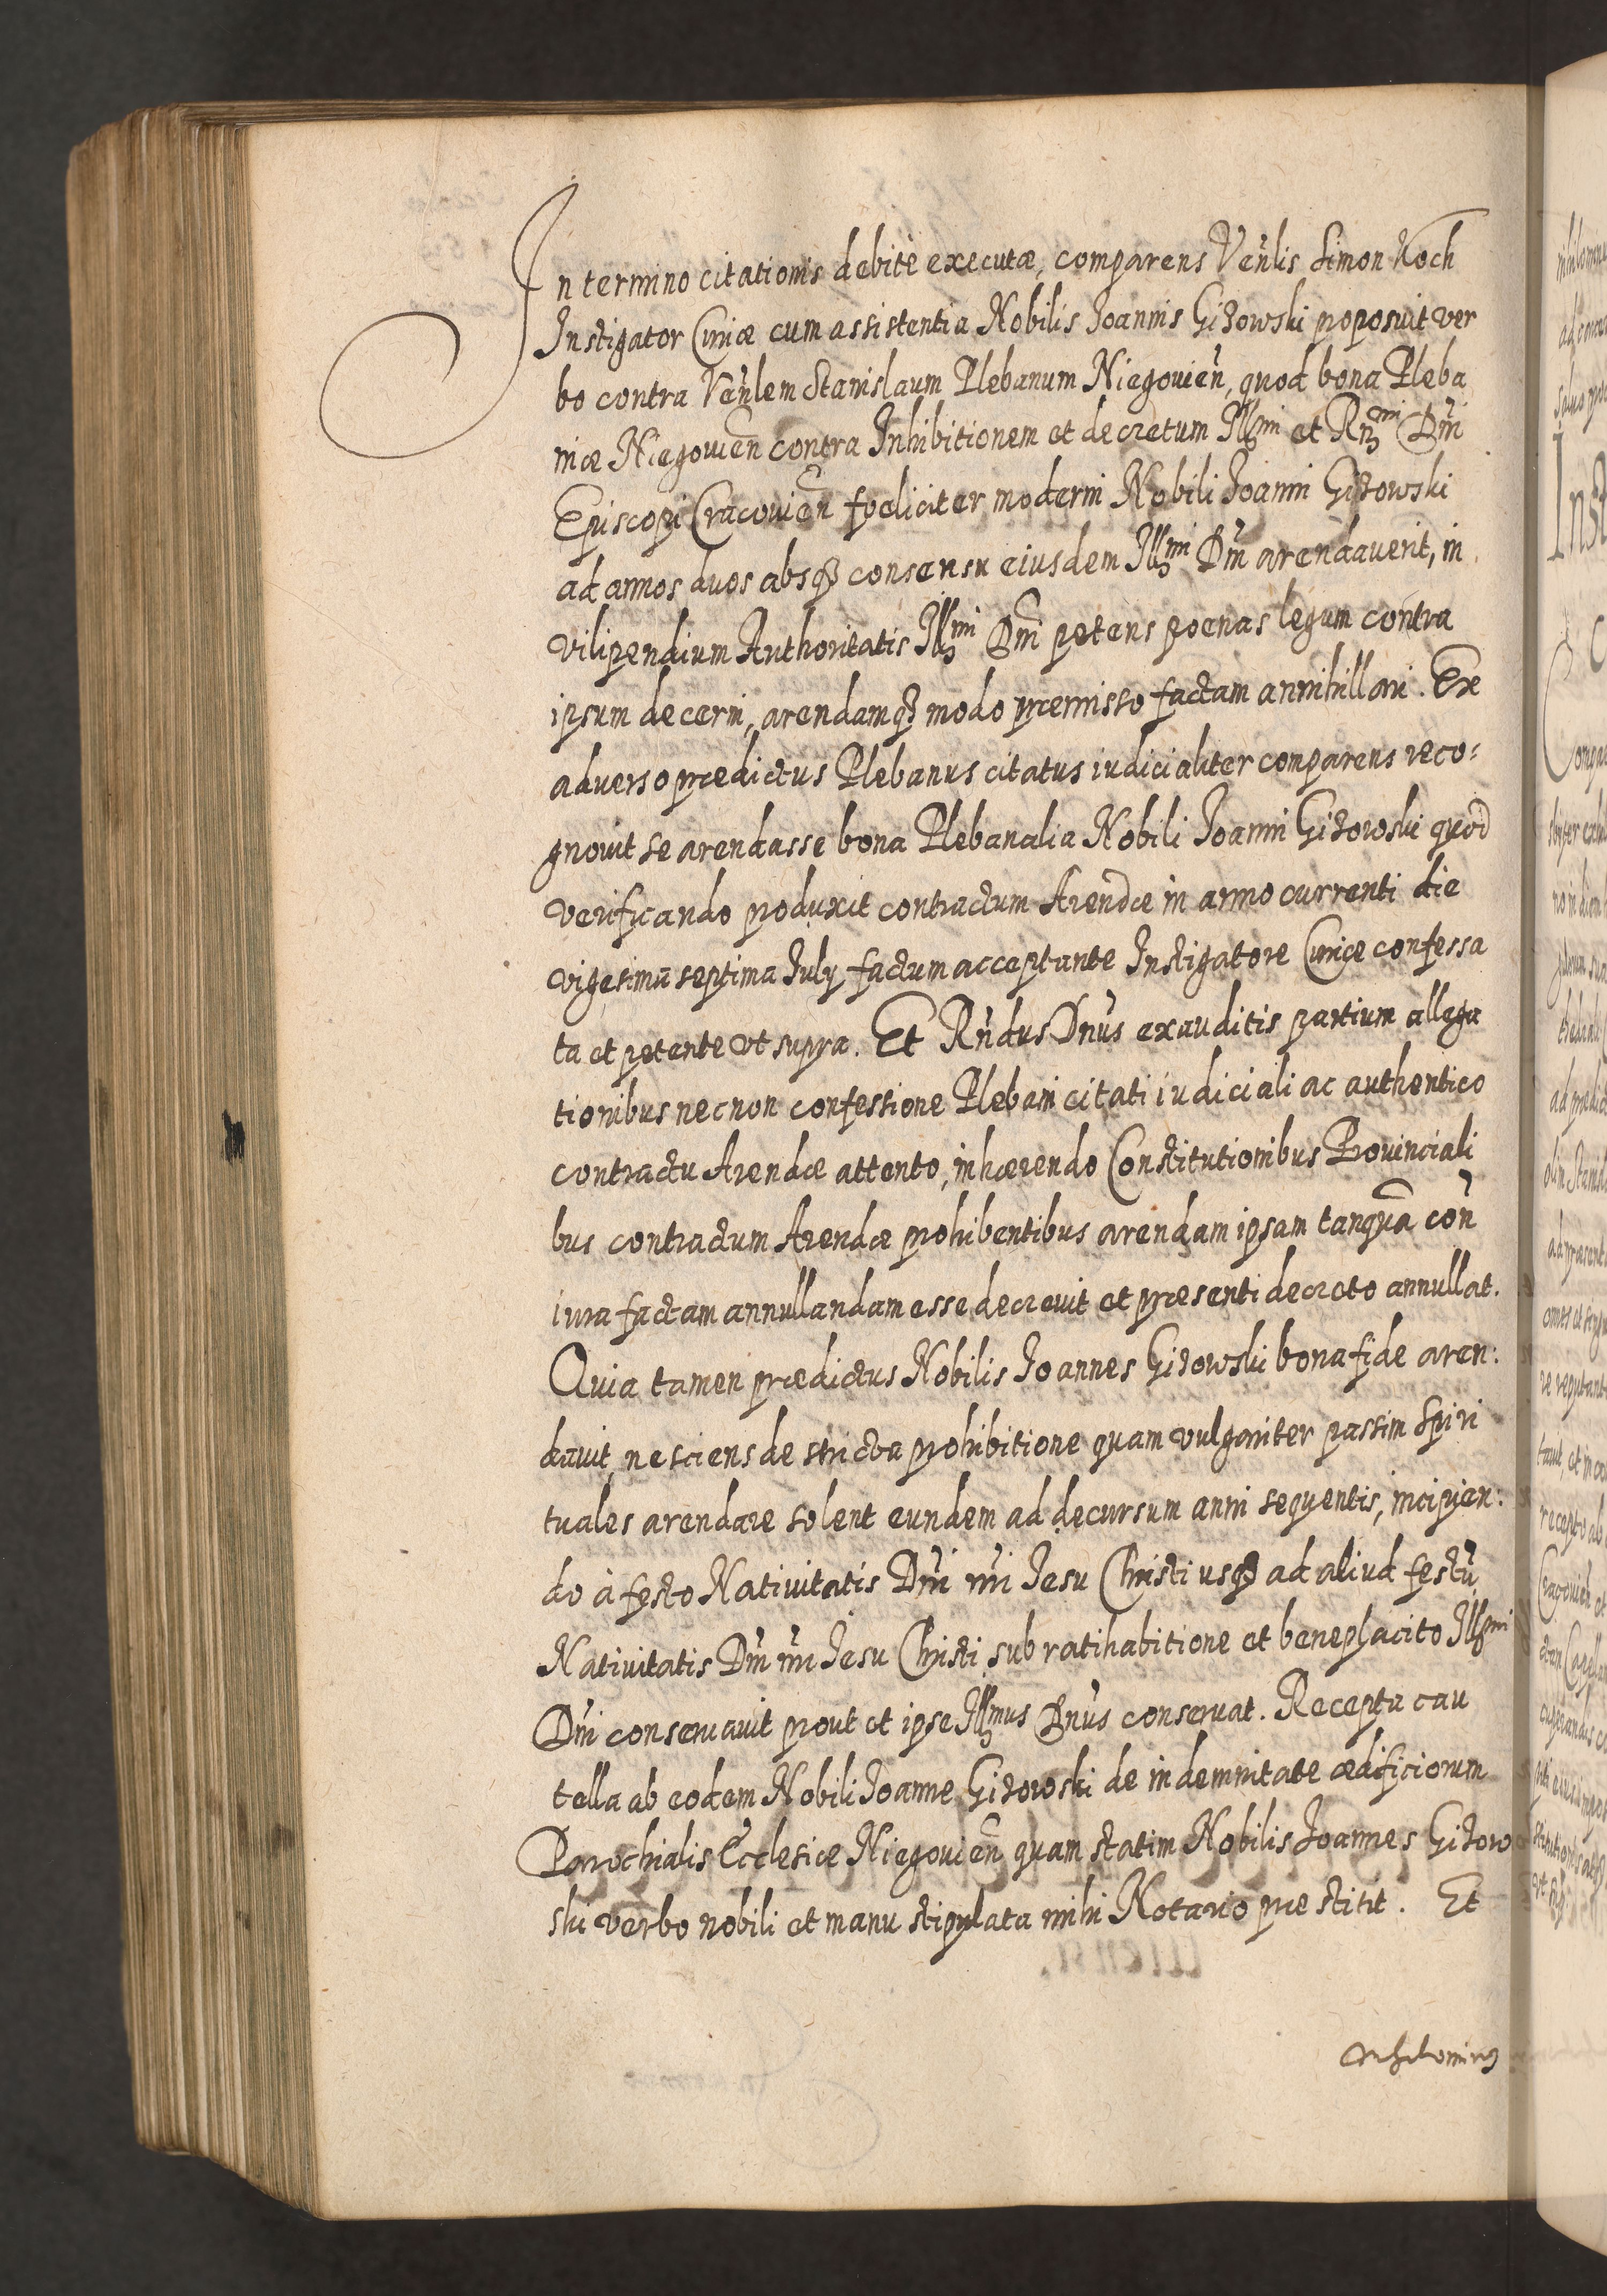 In termino citationis debitè executæ, comparens Venlis Simon Koch
Instigator Curiæ cum assistentia Nobilis Joannis Gizowski proposuit ver
bo contra Venlem Stanislaum Plebanum Niegouien, quod bona Pleba
niæ Niegouien contra Inhibitionem et decretum Illmi et Rmi Dni
Episcopi Cracouien foeliciter moderni Nobili Joanni Gizowski
ad annos duos absq consensu eiusdem Illmi Dni arendauerit, in
vilipendium Authoritatis Illmi Dni petens poenas legum contra
ipsum decerni, arendamq modo præmisso factam annihillari. Ex
aduerso prædictus Plebanus citatus iudicialiter comparens reco:
gnouit se arendasse bona Plebanalia Nobili Joanni Gizowski quod
verificando produxit contractum Arendæ in anno currenti die
vigesima septima July factum acceptante Instigatore Curiæ confessa
ta et petente vt supra. Et Rndus Dnus exauditis partium allega
tionibus necnon confessione Plebani citati iudiciali ac authentico
contractu Arendæ attento, inhærendo Constitutionibus Prouinciali
bus contractum Arendæ prohibentibus arendam ipsam tanquã con
iura factam annullandam esse decreuit et præsenti decreto annullat.
Quia tamen prædictus Nobilis Joannes Gizowski bona fide aren:
dauit, nesciens de stricta prohibitione quam vulgariter passim Spiri
tuales arendare solent eundem ad decursum anni sequentis, incipien:
do à festo Natiuitatis Dni nri Jesu Christi usq ad aliud festũ
Natiuitatis Dni nri Jesu Christi sub ratihabitione et beneplacito Illmi
Dni conseruauit prout et ipse Illmus Dnus conseruat. Recepta cau
tella ab eodem Nobili Joanne Gizowski de indemnitate ædificiorum
Parochialis Ecclesiæ Niegouien quam statim Nobilis Joannes Gizow
ski verbo nobili et manu stipulata mihi Notario præstitit. Et